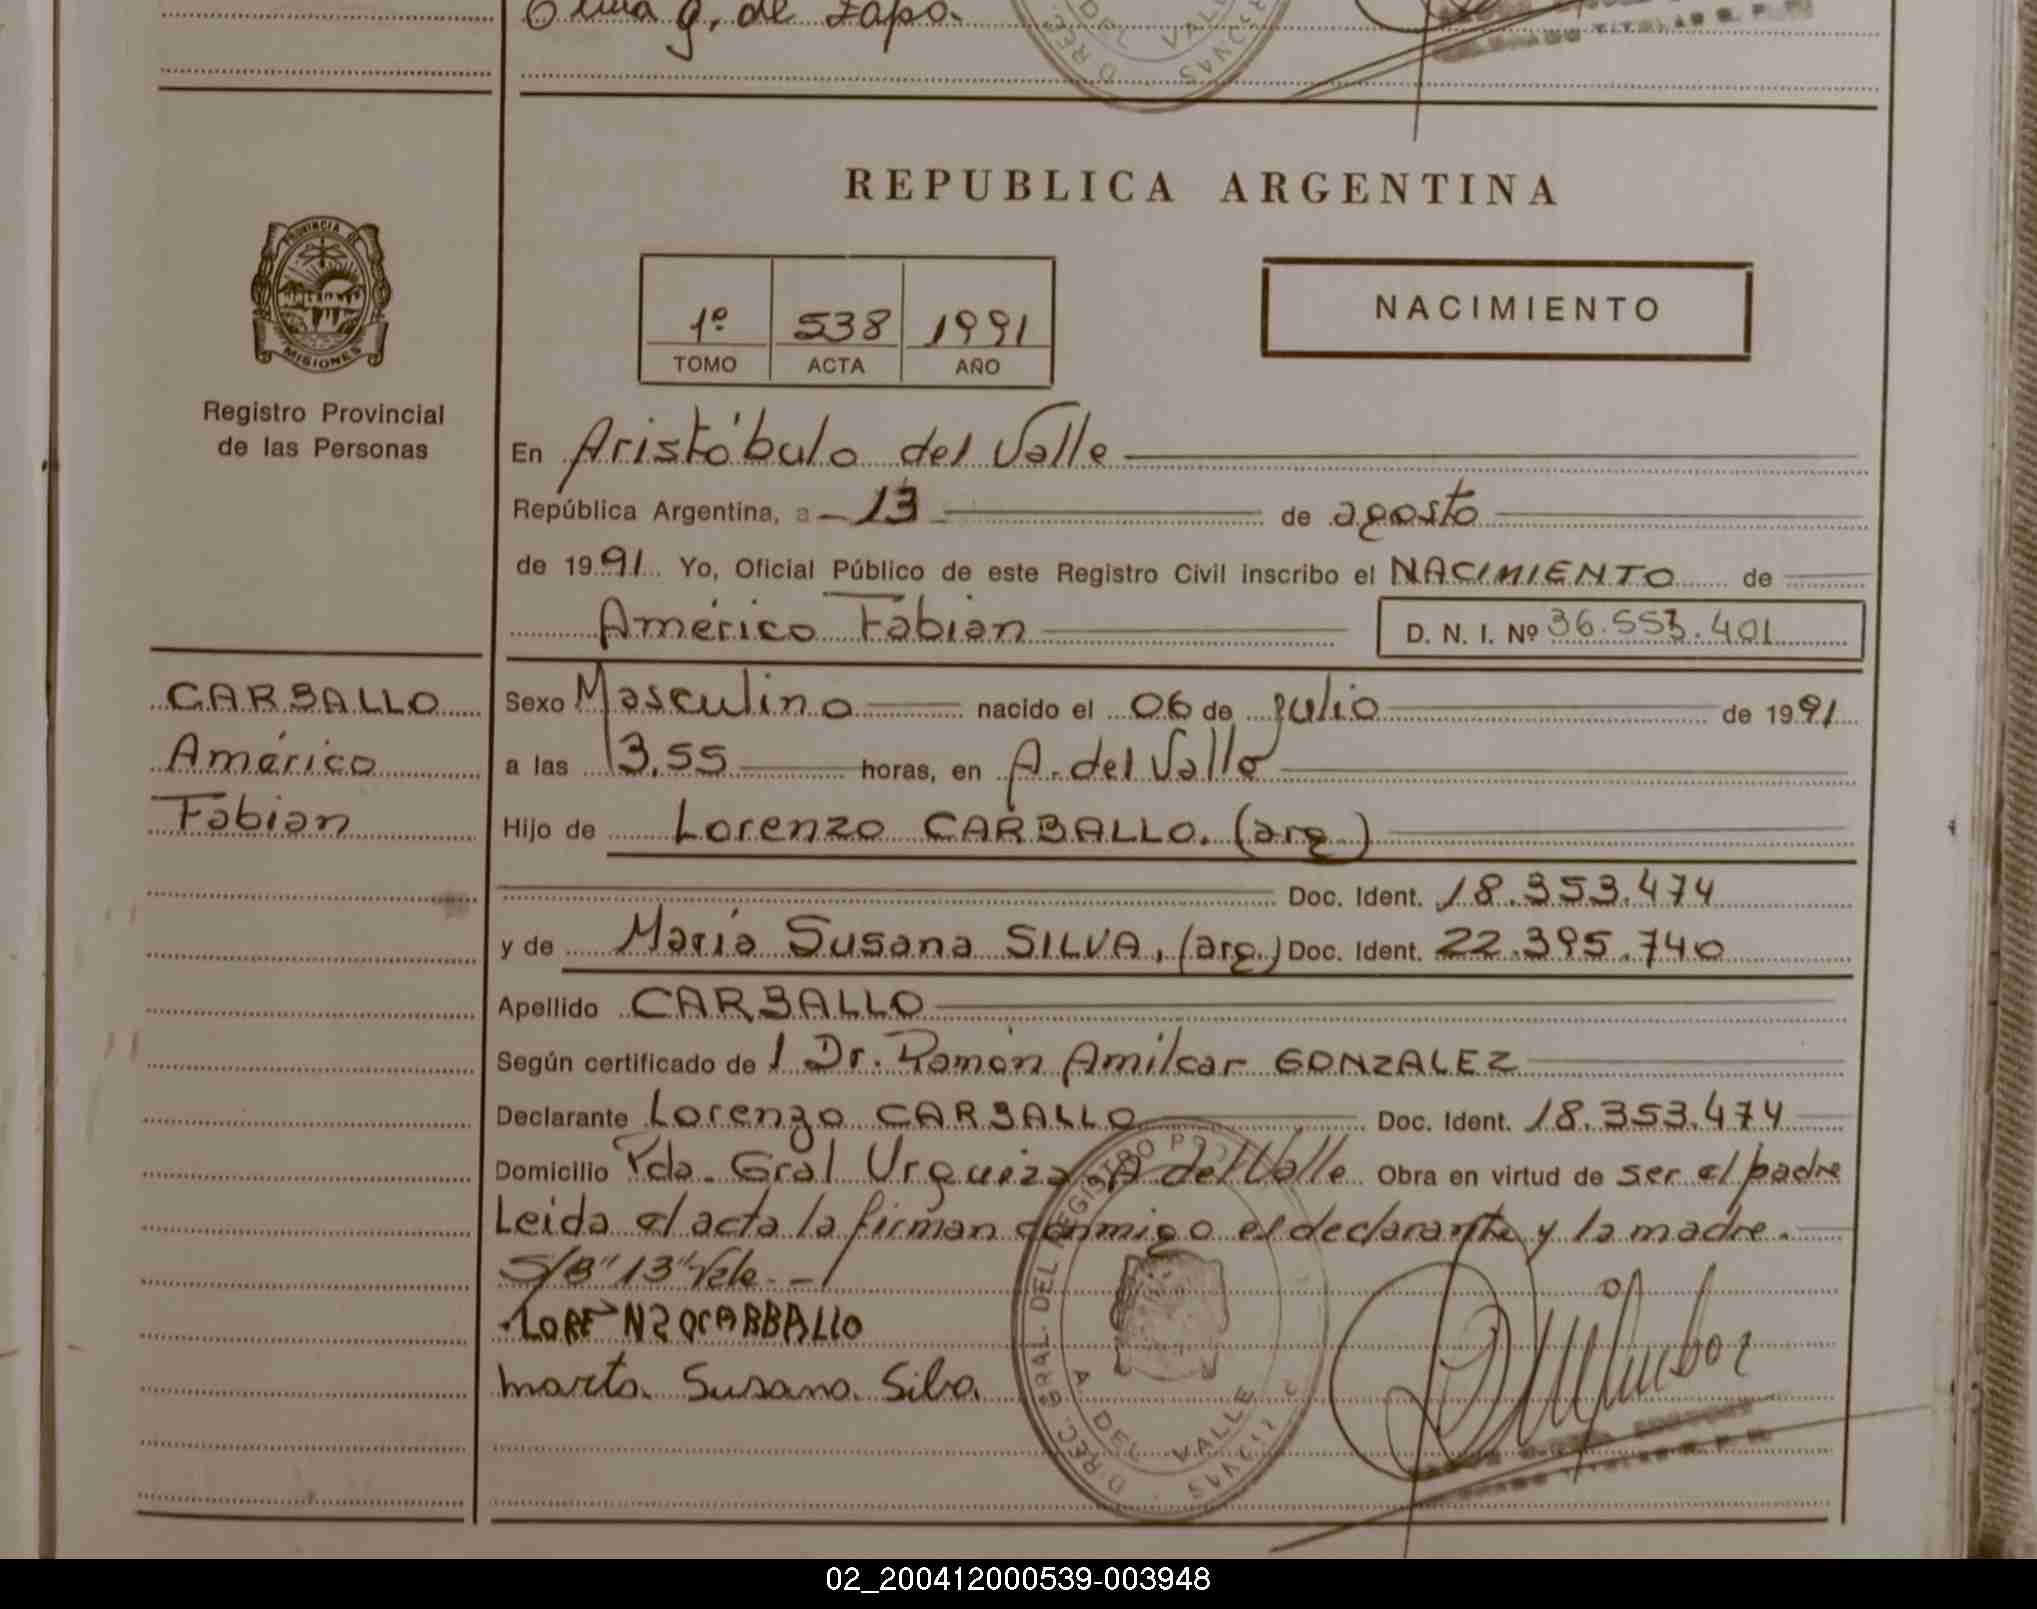 g. de Zapo.
REPUBLICA ARGENTINA
PROVINCIA DE
MISIONES
Registro Provincial
de las Personas
NACIMIENTO
1º 538 1991
TOMO ACTA AÑO
En Aristóbulo del Valle
República Argentina, a 13 de agosto
de 1991 Yo, Oficial Público de este Registro Civil inscribo el NACIMIENTO de
Américo Fabian D. N. I. Nº 36.553.401
CARBALLO
Américo
Fabian
Sexo Masculino nacido el 06 de julio de 1991
a las 13,55 horas, en A. del Valle
Hijo de Lorenzo CARBALLO. (arg.)
Doc. Ident. 18.353.474
y de María Susana SILVA, (arg.) Doc. Ident. 22.395.740
Apellido CARBALLO
Según certificado de l Dr. Ramón Amilcar GONZALEZ
Declarante Lorenzo CARBALLO Doc. Ident. 18.353.474
Domicilio Pda. Gral Urquiza A del Valle Obra en virtud de ser el padre
Leida el acta la firman conmigo el declarante y la madre.
S/B" 13" Vale.-
LORENZO CARBALLO
Maria Susana Silva.
DIREC. GRAL. DEL REGISTRO
A. DEL VALLE
02_200412000539-003948